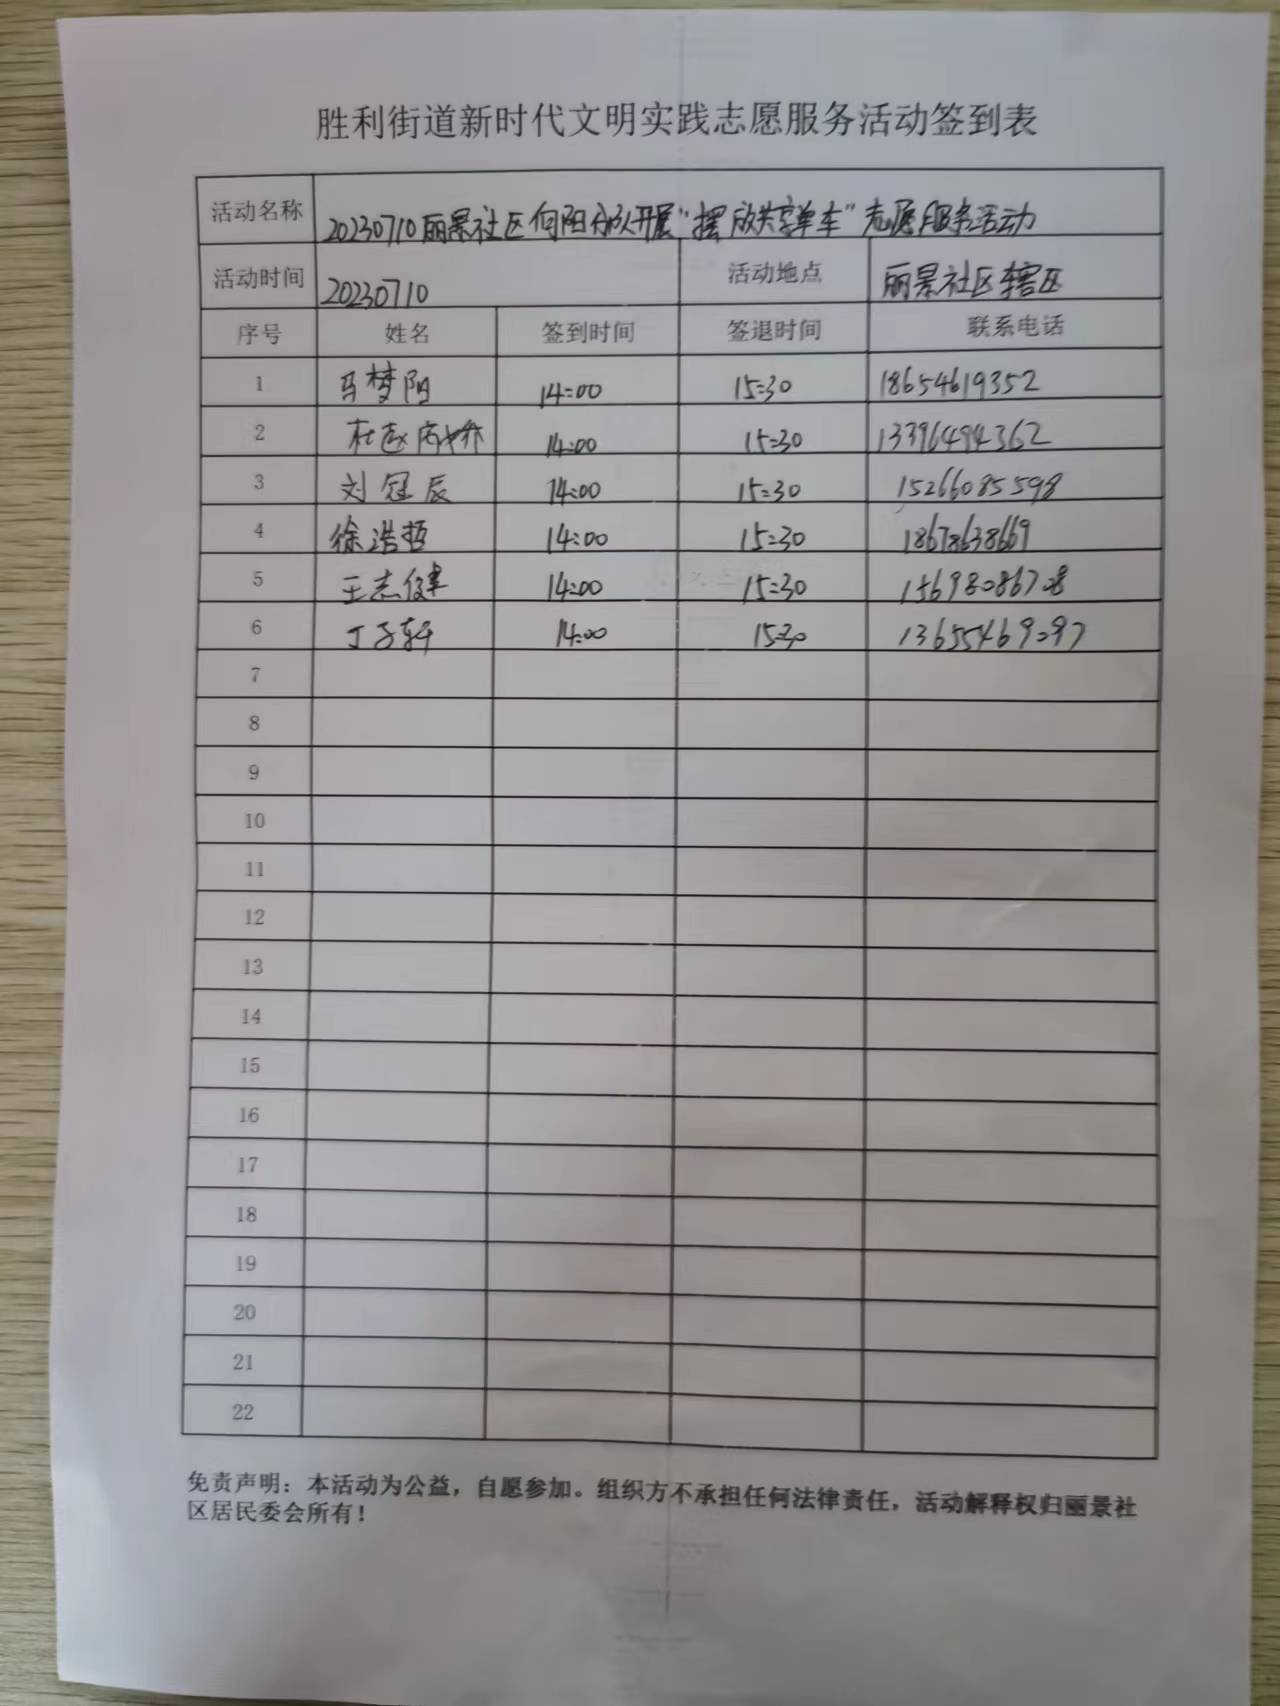 胜利街道新时代文明实践志愿服务活动签到表
活动名称 20230710丽景社区向阳分队开展“摆放共享单车”志愿服务活动
活动时间 20230710 活动地点 丽景社区辖区
序号 姓名 签到时间 签退时间 联系电话
1 马梦阳 14:00 15:30 18654619352
2 14:00 15:30 13396494362
3 刘冠辰 14:00 15:30 15266085598
4 徐浩哲 14:00 15:30 18678638669
5 王志健 14:00 15:30 15698086708
6 丁子轩 14:00 15:30 13655469097
7
8
9
10
11
12
13
14
15
16
17
18
19
20
21
22
免责声明：本活动为公益，自愿参加。组织方不承担任何法律责任，活动解释权归丽景社
区居民委会所有！